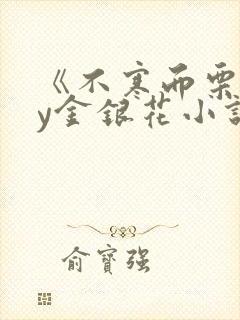 《不寒而栗
y金银花小说
俞寶强